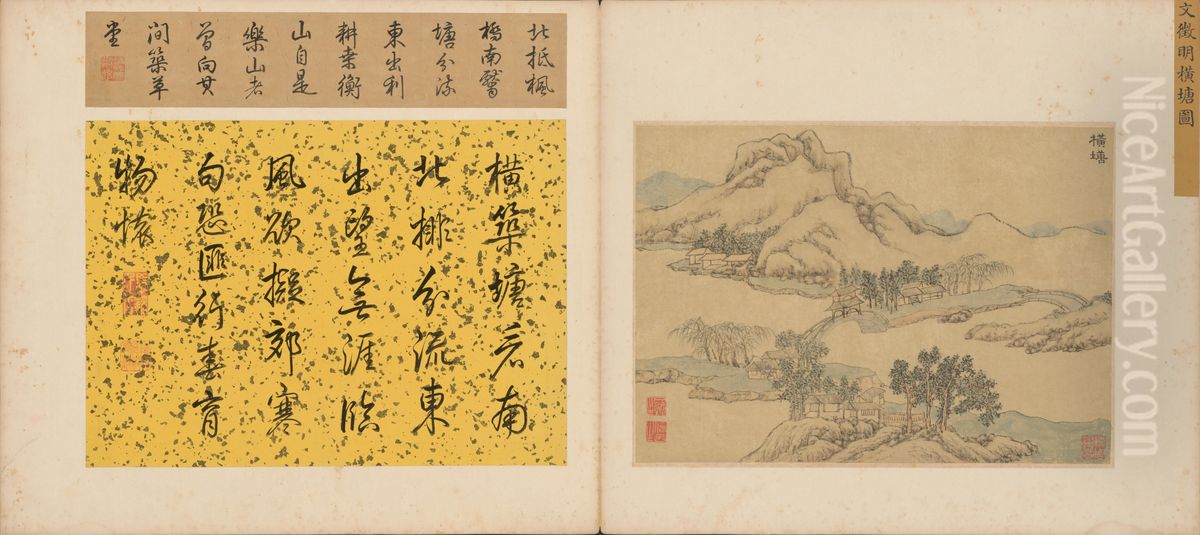 文徵明橫塘圖
橫塘
北抵楓
橋南
塘分流
東出利
耕桑衡
山自是
樂山者
曾向其
間築草
堂
橫築塘南
北排分流東
出望無涯臨
風欲擬郊寒
句恐匪行春育
物懷
NiceArtGallery.com